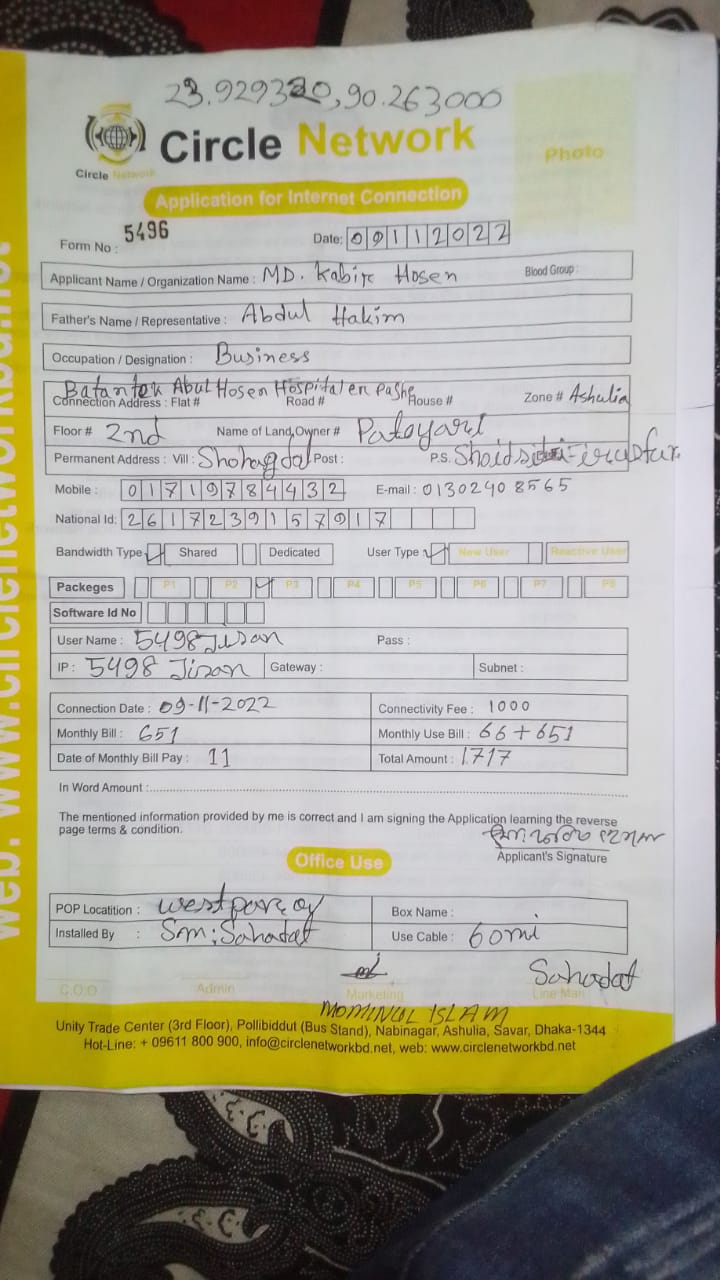 23.929320,90.263000
Circle Network
Circle Network
Photo
Application for Internet Connection
Form No : 5496
Date: 09112022
Applicant Name / Organization Name : MD. Kabir Hosen Blood Group :
Father's Name / Representative : Abdul Hakim
Occupation / Designation : Business
Batantek Abul Hosen Hospitaler Pashe
Connection Address : Flat # Road # House # Zone # Ashulia
Floor # 2nd Name of Land Owner #
Permanent Address : Vill : Shohagdal Post : P.S.
Mobile : 01719784432 E-mail : 01302408565
National Id: 2617239157917
Bandwidth Type Shared Dedicated User Type New User Reactive User
Packeges P1 P2 P3 P4 P5 P6 P7 P8
Software Id No
User Name : 5498Jisan Pass :
IP : 5498 Jisan Gateway : Subnet :
Connection Date : 09-11-2022 Connectivity Fee : 1000
Monthly Bill : 651 Monthly Use Bill : 66+651
Date of Monthly Bill Pay : 11 Total Amount : 1717
In Word Amount :
The mentioned information provided by me is correct and I am signing the Application learning the reverse
page terms & condition.
Applicant's Signature
Office Use
POP Locatition : Box Name :
Installed By : Sm: Sahadat Use Cable : 60mi
Sahadat
C.O.O Admin Marketing Line Man
MOMINUL ISLAM
Unity Trade Center (3rd Floor), Pollibiddut (Bus Stand), Nabinagar, Ashulia, Savar, Dhaka-1344
Hot-Line: + 09611 800 900, info@circlenetworkbd.net, web: www.circlenetworkbd.net
web: www.circlenetworkbd.net